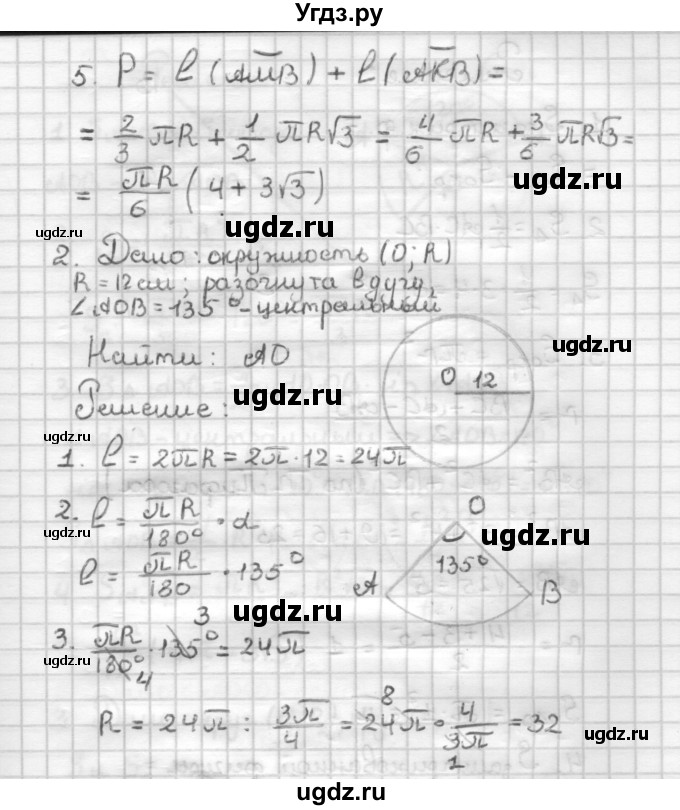 Угдз.ру
5. P = l (AMB) + l (AKB) =
= 2/3 πR + 1/2 πR√3 = 4/6 πR + 3/6 πR√3 =
= πR/6 (4 + 3√3)
ugdz.ru
ugdz.ru
ugdz.ru
2. Дано: окружность (O; R)
R = 12 см; разогнута в дугу,
∠AOB = 135° - центральный
ugdz.ru
Найти: AO
ugdz.ru
O 12
Решение:
ugdz.ru
1. l = 2πR = 2π · 12 = 24π
2. l = πR/180° · α
O
ugdz.ru
ugdz.ru
l = πR/180 · 135°
135°
A
B
3
ugdz.ru
3. πR/180° · 135° = 24π
4
ugdz.ru
R = 24π : 3π/4 = 24π · 4/3π = 32
8
1
ugdz.ru
ugdz.ru
ugdz.ru